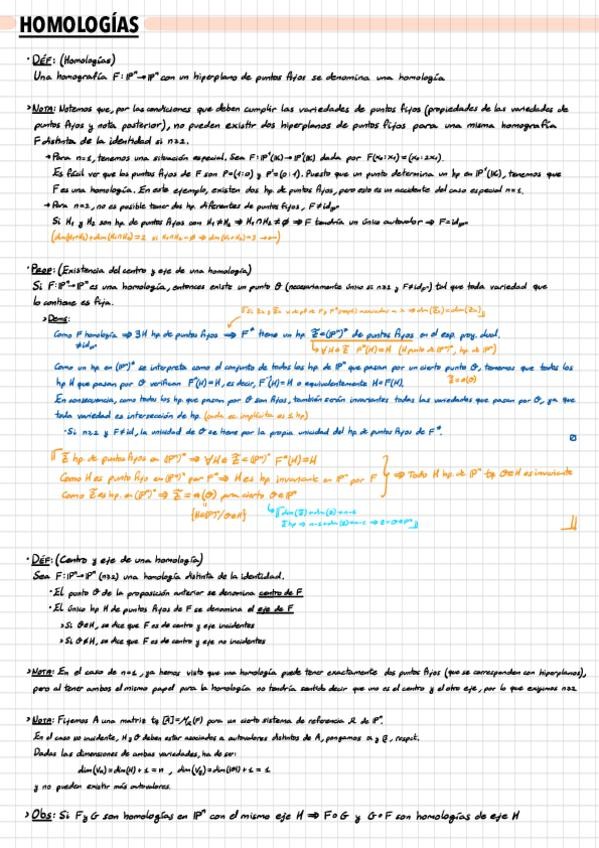 HOMOLOGÍAS
· DÉF: (Homologías)
Una homografía F: ℙⁿ→ℙⁿ con un hiperplano de puntos fijos se denomina una homología
> NOTA: Notemos que, por las condiciones que deben cumplir las variedades de puntos fijos (propiedades de las variedades de
puntos fijos y nota posterior), no pueden existir dos hiperplanos de puntos fijos para una misma homografía
F distinta de la identidad si n≥2.
→ Para n=1, tenemos una situación especial. Sea F: ℙ¹(K)→ℙ¹(K) dada por F(x₀:x₁)=(x₀:2x₁).
Es fácil ver que los puntos fijos de F son P=(1:0) y P'=(0:1). Puesto que un punto determina un hp en ℙ¹(K), tenemos que
F es una homología. En este ejemplo, existen dos hp. de puntos fijos, pero esto es un accidente del caso especial n=1.
→ Para n=2, no es posible tomar dos hp. diferentes de puntos fijos, F≠id
Si H₁ y H₂ son hp. de puntos fijos con H₁≠H₂ ⇒ H₁∩H₂≠∅ ⇒ F tendría un único autovalor ⇒ F=id
· PROP: (Existencia del centro y eje de una homología)
Si F: ℙⁿ→ℙⁿ es una homología, entonces existe un punto O (necesariamente único si n≥2 y F≠id) tal que toda variedad que
lo contiene es fija.
> Demo:
Como F homología ⇒ ∃H hp. de puntos fijos ⇒ F* tiene un hp Z̃⊂(ℙⁿ)* de puntos fijos en el esp. proy. dual.
≠id
↳ ∀H∈Z̃ F*(H)=H
Como un hp en (ℙⁿ)* se interpreta como el conjunto de todos los hp de ℙⁿ que pasan por un cierto punto O, tenemos que todos los
hp H que pasan por O verifican F*(H)=H, es decir, F⁻¹(H)=H o equivalentemente H=F(H).
En consecuencia, como todos los hp. que pasan por O son fijos, también serán invariantes todas las variedades que pasan por O, ya que
toda variedad es intersección de hp.
· Si n≥2 y F≠id, la unicidad de O se tiene por la propia unicidad del hp de puntos fijos de F*.
Z̃ hp. de puntos fijos en (ℙⁿ)* ⇒ ∀H∈Z̃⊂(ℙⁿ)* F*(H)=H
Como H es punto fijo en (ℙⁿ)* por F* ⇒ H es hp invariante en ℙⁿ por F
⇒ Todo H hp. de ℙⁿ tq O∈H es invariante
Como Z̃ es hp. en (ℙⁿ)* ⇒ Z̃ = (O) para cierto O∈ℙⁿ
· DÉF: (Centro y eje de una homología)
Sea F: ℙⁿ→ℙⁿ (n≥2) una homología distinta de la identidad.
· El punto O de la proposición anterior se denomina centro de F
· El único hp H de puntos fijos de F se denomina el eje de F
> Si O∈H, se dice que F es de centro y eje incidentes
> Si O∉H, se dice que F es de centro y eje no incidentes
> NOTA: En el caso de n=1, ya hemos visto que una homología puede tener exactamente dos puntos fijos (que se corresponden con hiperplanos),
pero al tener ambos el mismo papel para la homología no tendría sentido decir que uno es el centro y el otro eje, por lo que exigimos n≥2
> NOTA: Fijemos A una matriz tq [A]=M_R(F) para un cierto sistema de referencia R de ℙⁿ.
En el caso no incidente, H y O deben estar asociados a autovalores distintos de A, pongamos α y β, respect.
Dadas las dimensiones de ambas variedades, ha de ser:
dim(Vα)=dim(H)+1=n , dim(Vβ)=dim({O})+1=1
y no pueden existir más autovalores.
> Obs: Si F y G son homologías en ℙⁿ con el mismo eje H ⇒ F∘G y G∘F son homologías de eje H